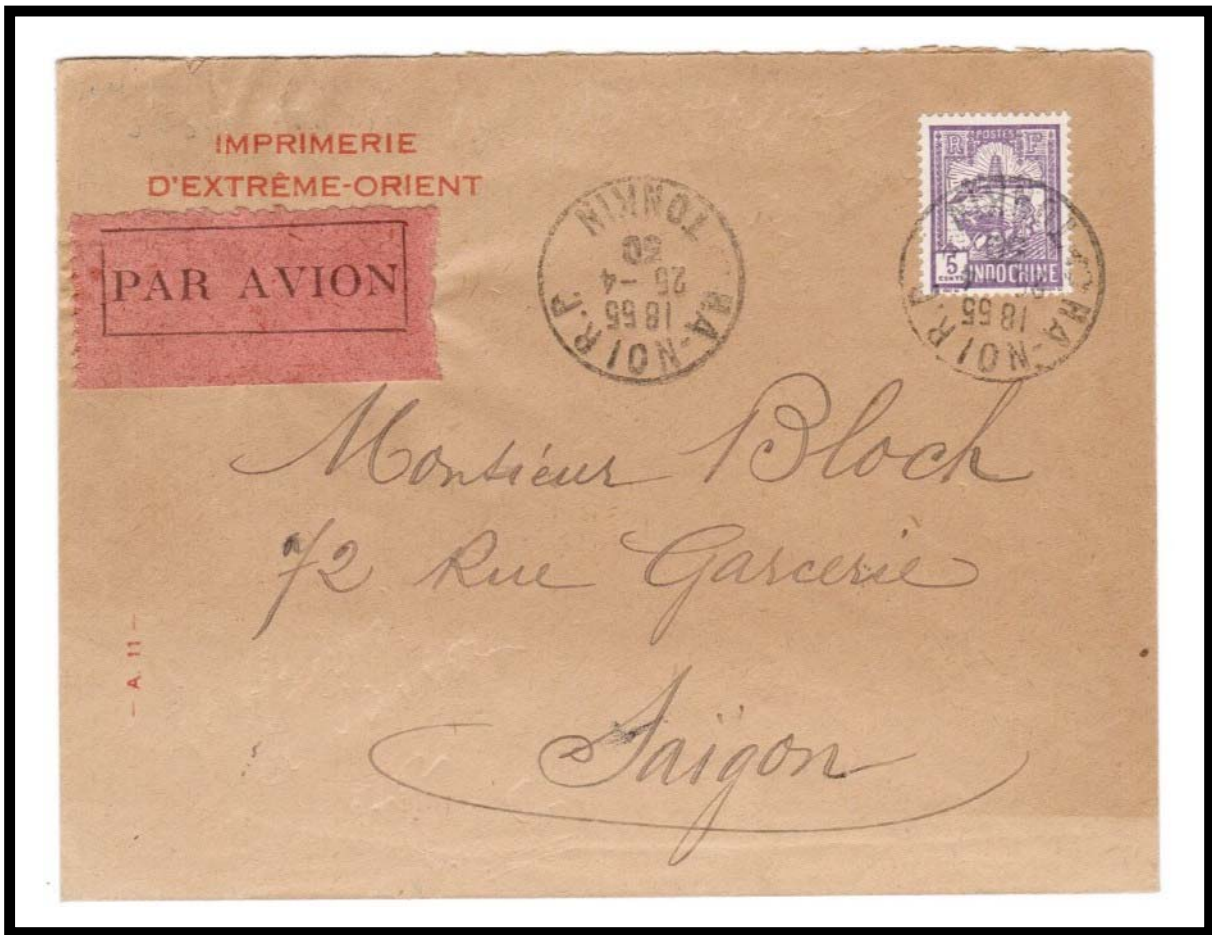 IMPRIMERIE
D'EXTRÊME-ORIENT
PAR AVION
HA-NOI R.P.
18 55
25 -4
30
TONKIN
R POSTES F
5
CENTS
INDOCHINE
HA-NOI R.P.
18 55
Monsieur Bloch
72 Rue Garcerie
Saïgon
- A. 11 -